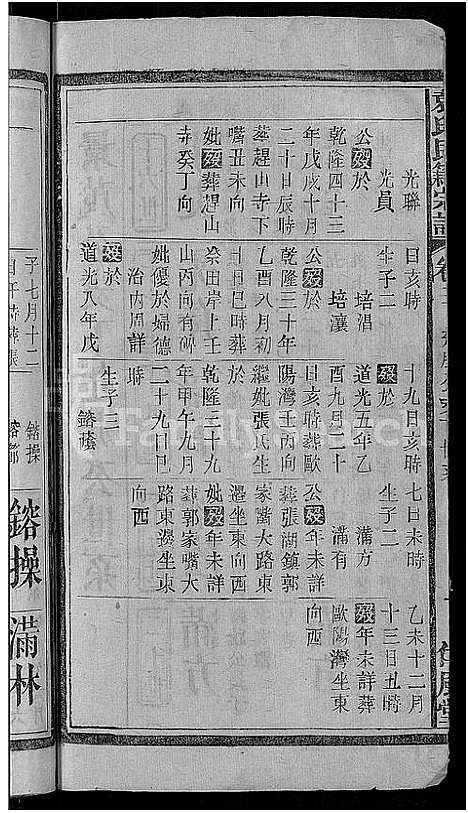 氏續宗譜
卷
光聯
光員
公歿於
乾隆四十三
年戊戌十月
二十日辰時
葬趕山寺下
嘴丑未向
妣歿葬趕山
寺癸丁向
日亥時
生子二
培淐
培瀼
公歿於
乾隆三十年
乙酉八月初
七日巳時葬
祭田岸上壬
山丙向有碑
妣優於婦德
治内周詳
歿於
道光八年戊
十九日亥時
歿於
道光五年乙
酉九月二十
日亥時葬歐
陽灣壬丙向
繼妣張氏生
於
乾隆三十九
年甲午九月
二十九日巳
時
生子三
鎔蔭
七日未時
生子二
滿方
滿有
公歿年未詳
葬張湖鎮郭
家嘴大路東
邊坐東向西
妣歿年未詳
葬郭家嘴大
路東邊坐東
向西
乙未十二月
十三日丑時
歿年未詳葬
歐陽灣坐東
向西
子七月十二
鎔操
鎔操
滿林
FamilySearch